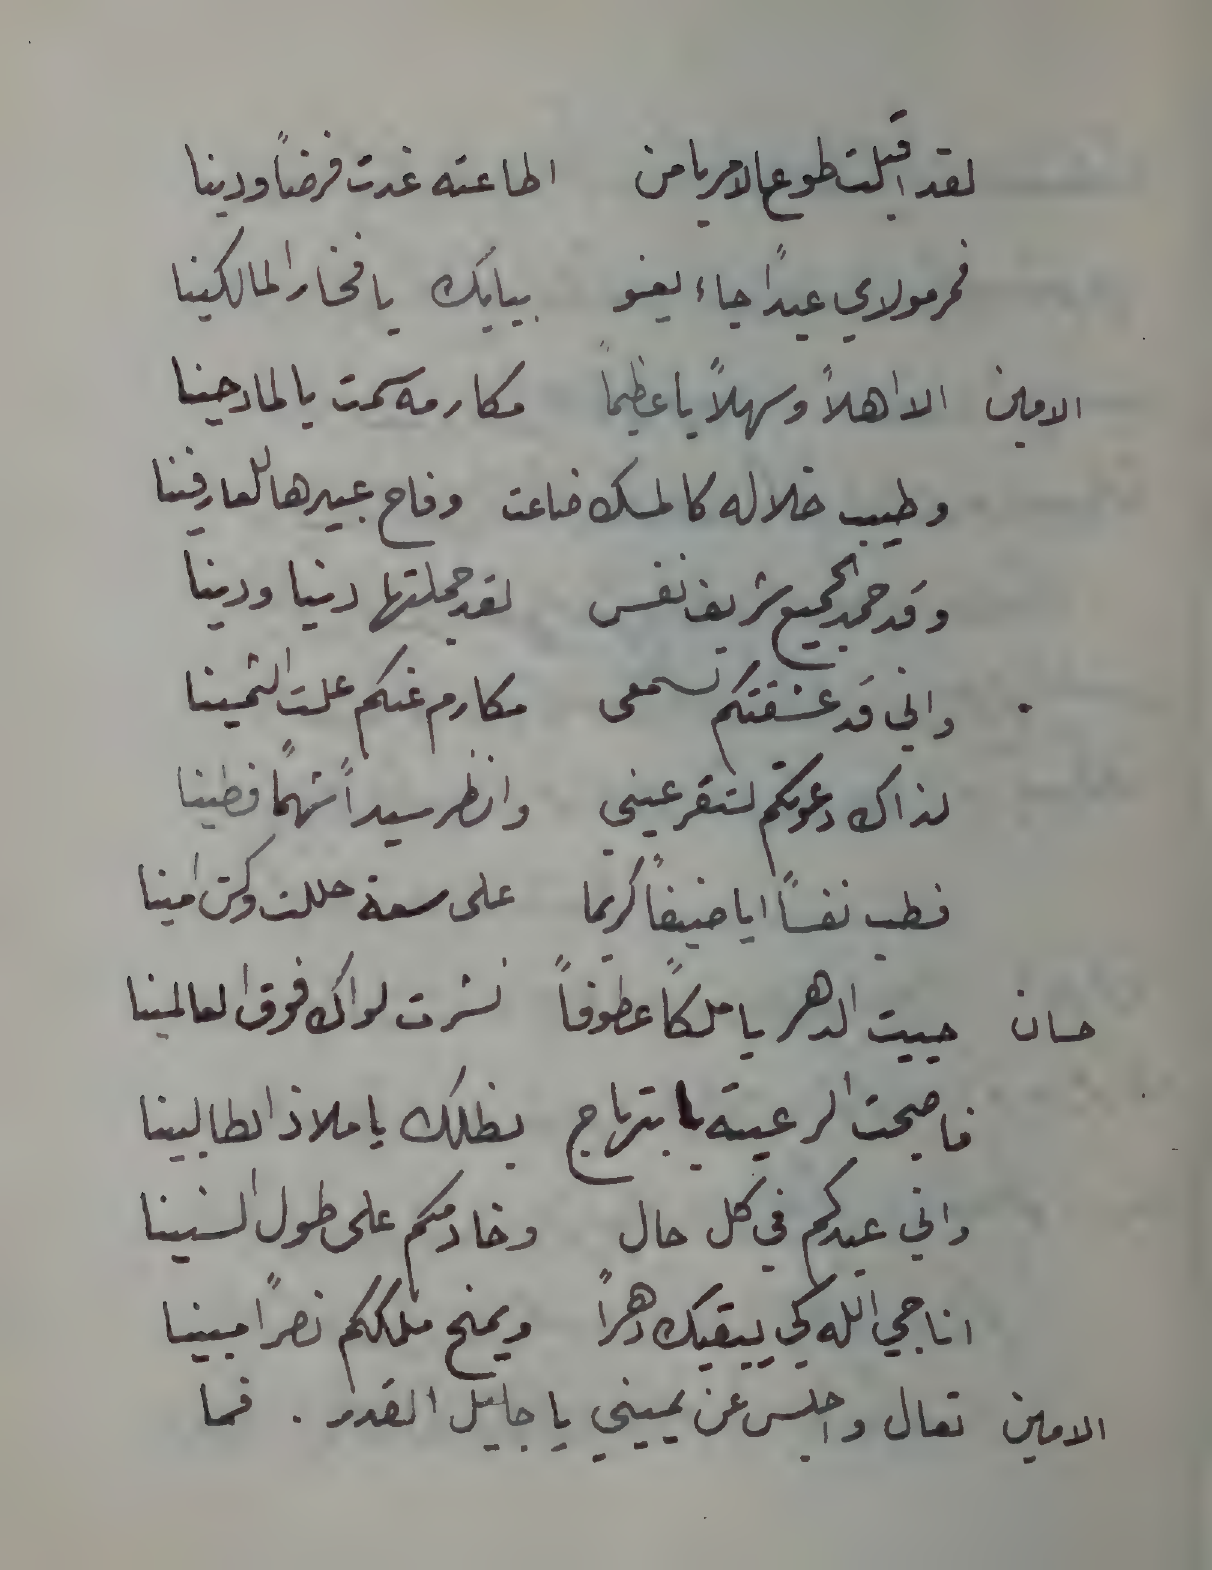 لقد اقبلت طوع الامر يا من اطاعته غدت فرضاً ودينا
فمر مولاي عبداً جاء يعنو ببابك يا فخار المالكينا
الامين الا اهلاً وسهلاً يا عظيماً مكارمه سمت يا لمادحينا
وطيب خلاله كالمسك ضاعت وفاح عبيرها للعارفينا
وقد حمد الجميع شريف نفس لقد جملتها دنيا ودينا
واني قد عشقتكم لسمعى مكارم عنكم علت الثمينا
لذاك دعوتكم لتقر عيني وانظر سيداً شهماً فطينا
فطب نفساً ايا ضيفاً كريما على سعة حللت وكن امينا
حسان حييت الدهر يا ملكاً عطوفاً نشرت لواك فوق العالمينا
فاصبحت الرعية بابتهاج بظلك يا ملاذ الطالبينا
واني عبدكم في كل حال وخادمكم على طول السنينا
اناجي الله كي يبقيك دهراً ويمنح ملككم نصراً مبينا
الامين تعال واجلس عن يميني يا جليل القدر . فما